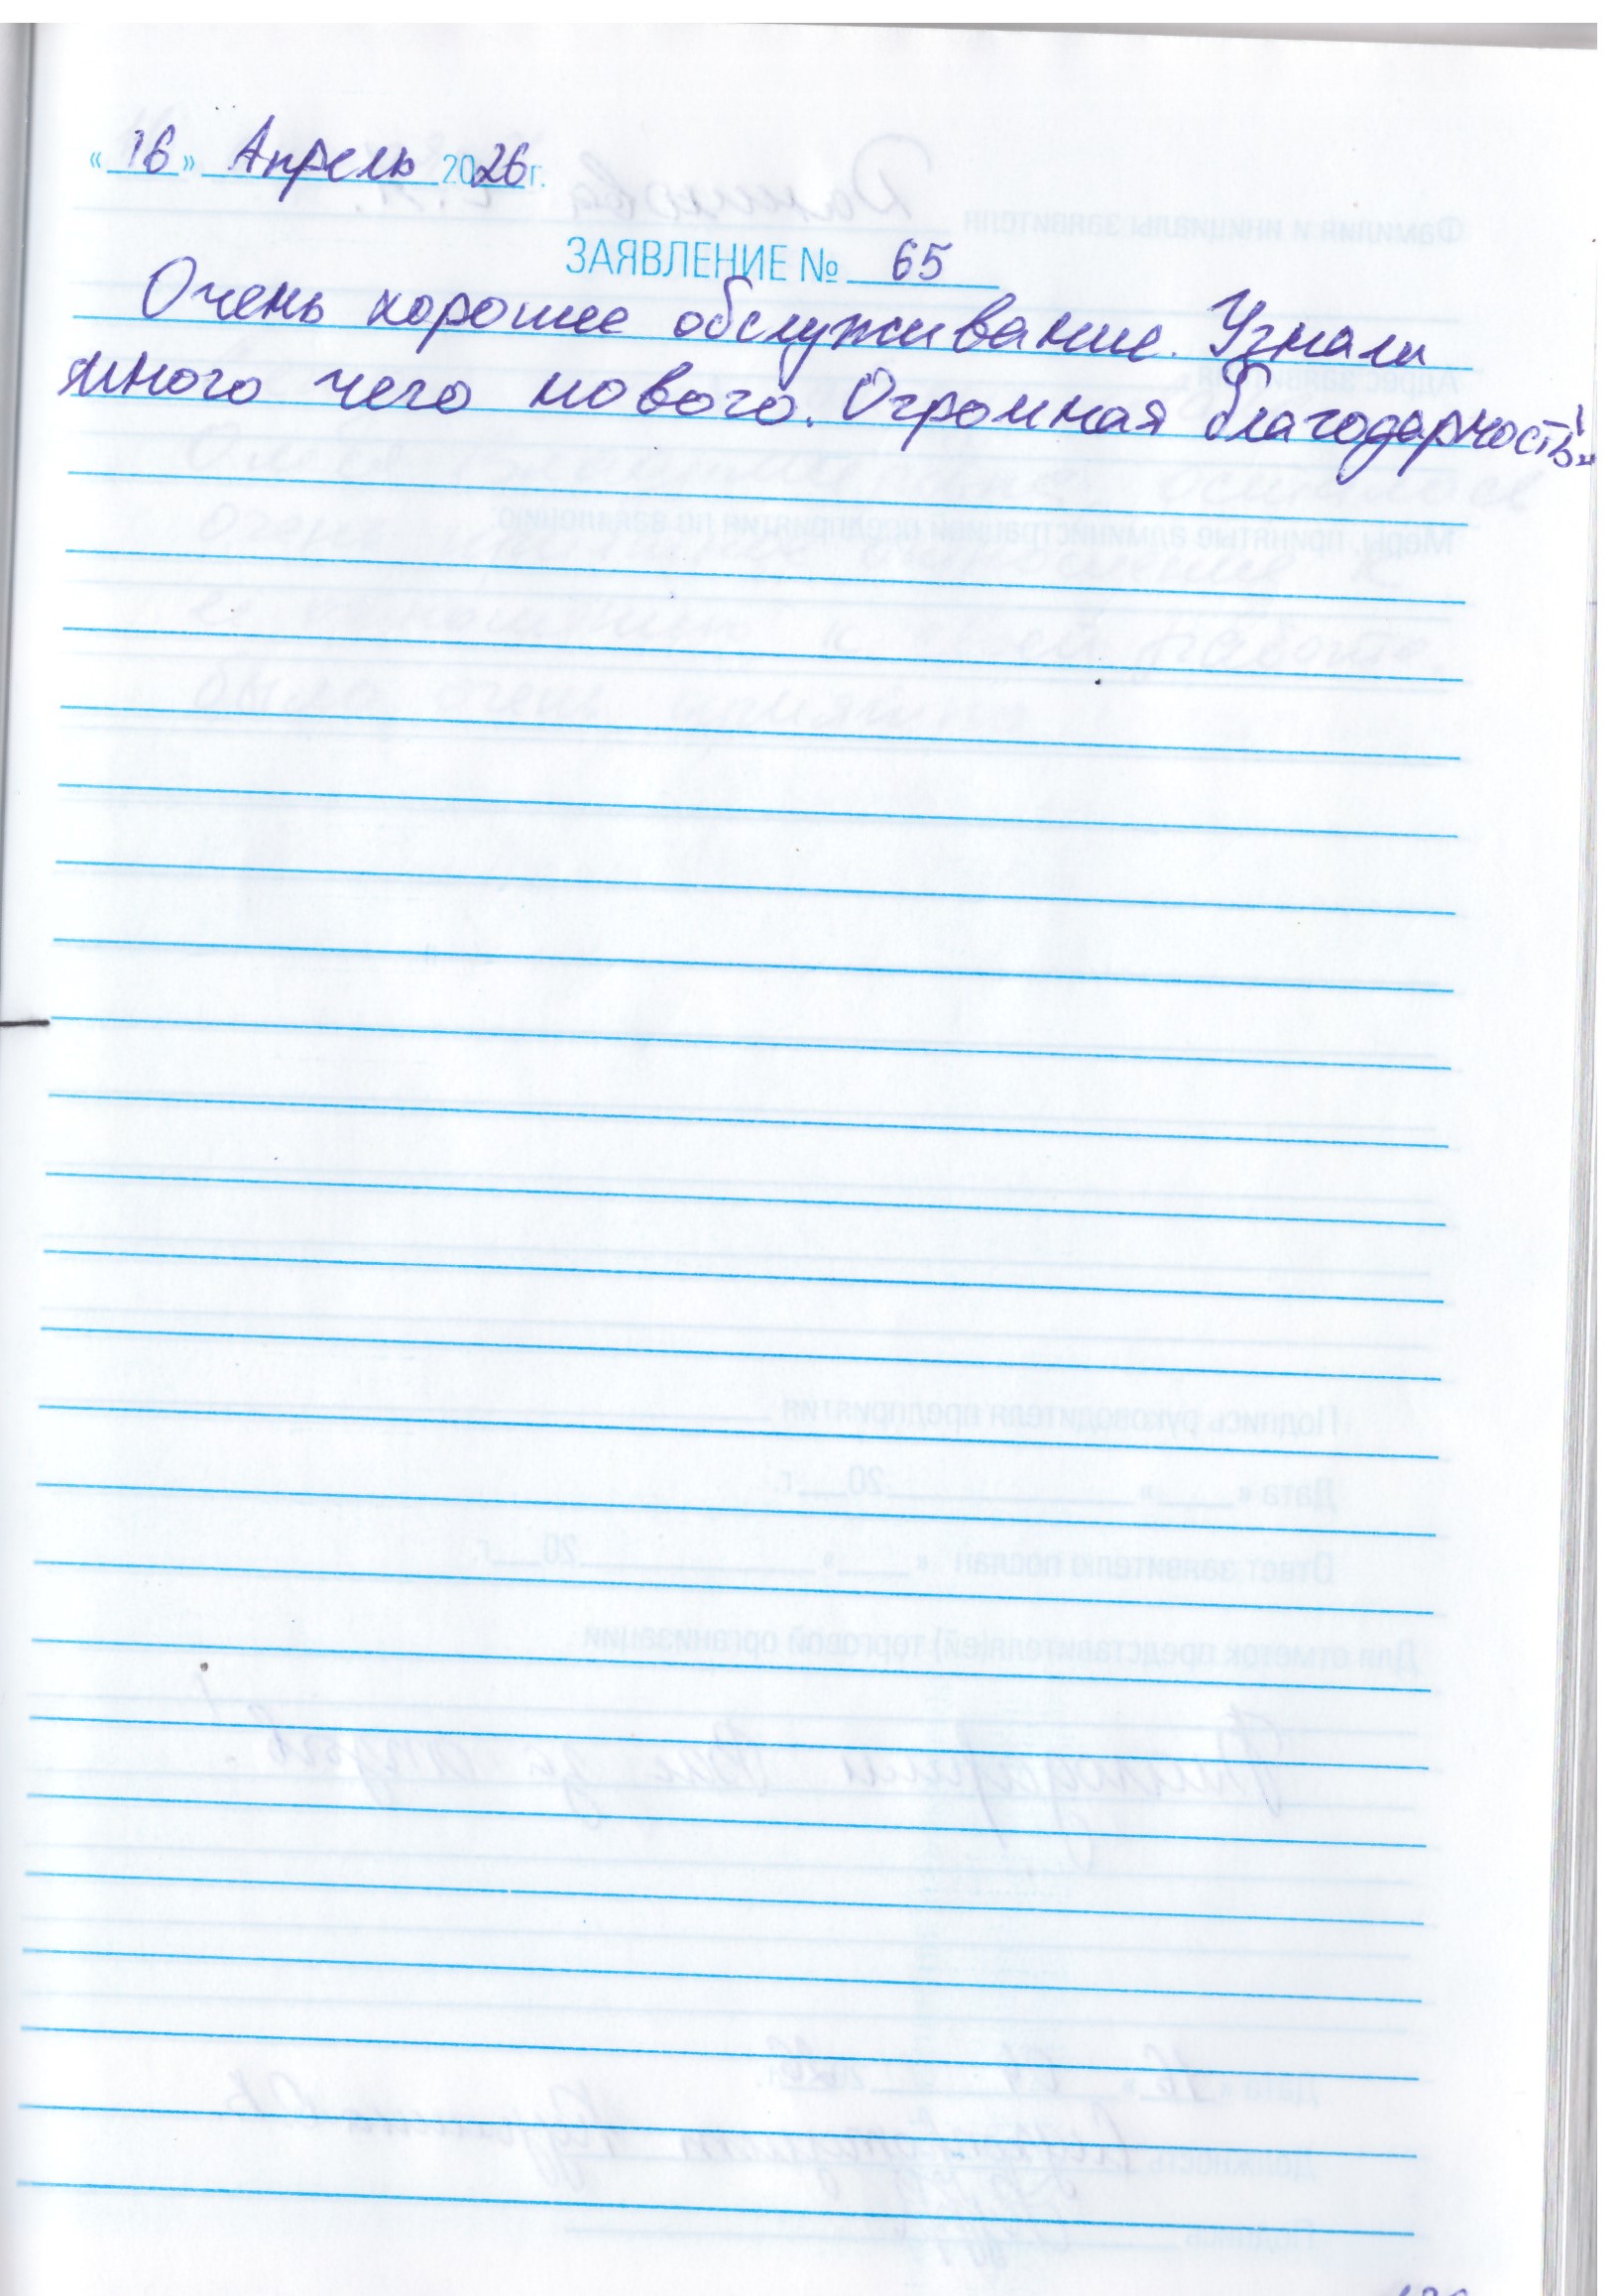 «16» Апрель 2026 г.
ЗАЯВЛЕНИЕ № 65
Очень хорошее обслуживание. Узнали
много чего нового. Огромная благодарность!